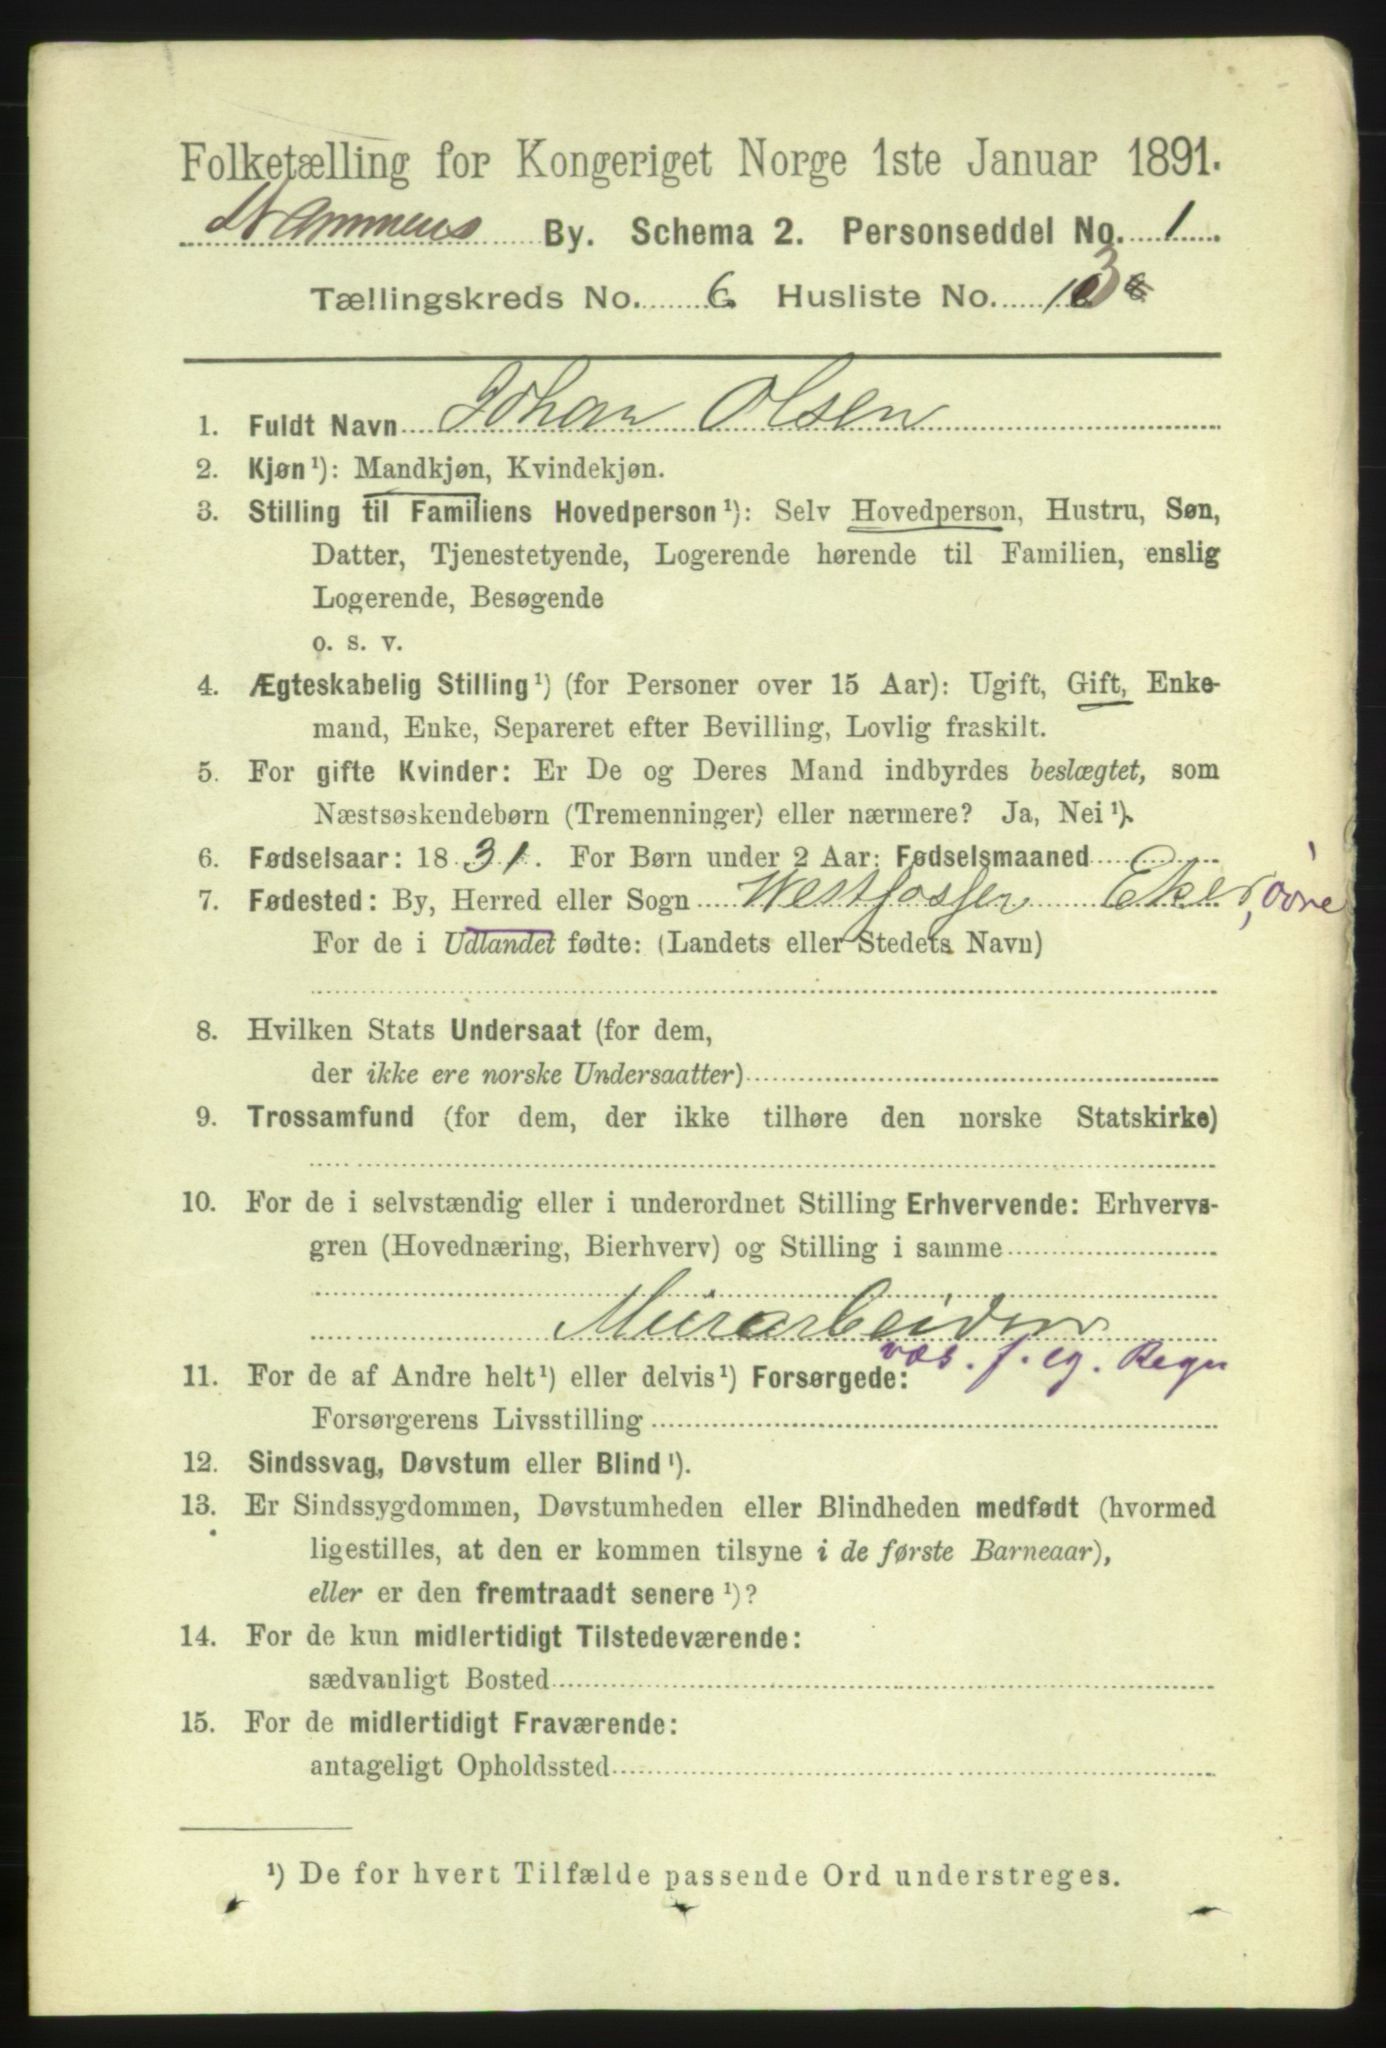 Folketælling for Kongeriget Norge 1ste Januar 1891.
Drammens By. Schema 2. Personseddel No. 1.
Tællingskreds No. 6 Husliste No. 103
1. Fuldt Navn Johan Olsen
2. Kjøn¹): Mandkjøn, Kvindekjøn.
3. Stilling til Familiens Hovedperson¹): Selv Hovedperson, Hustru, Søn,
Datter, Tjenestetyende, Logerende hørende til Familien, enslig
Logerende, Besøgende
o. s. v.
4. Ægteskabelig Stilling¹) (for Personer over 15 Aar): Ugift, Gift, Enke-
mand, Enke, Separeret efter Bevilling, Lovlig fraskilt.
5. For gifte Kvinder: Er De og Deres Mand indbyrdes beslægtet, som
Næstsøskendebørn (Tremenninger) eller nærmere? Ja, Nei¹).
6. Fødselsaar: 1831. For Børn under 2 Aar: Fødselsmaaned
7. Fødested: By, Herred eller Sogn Westfosjen Eker, øvre
For de i Udlandet fødte: (Landets eller Stedets Navn)
8. Hvilken Stats Undersaat (for dem,
der ikke ere norske Undersaatter)
9. Trossamfund (for dem, der ikke tilhøre den norske Statskirke)
10. For de i selvstændig eller i underordnet Stilling Erhvervende: Erhvervs-
gren (Hovednæring, Bierhverv) og Stilling i samme
Murarbeider
væs. f. eg. Regn
11. For de af Andre helt¹) eller delvis¹) Forsørgede:
Forsørgerens Livsstilling
12. Sindssvag, Døvstum eller Blind¹).
13. Er Sindssygdommen, Døvstumheden eller Blindheden medfødt (hvormed
ligestilles, at den er kommen tilsyne i de første Barneaar),
eller er den fremtraadt senere¹)?
14. For de kun midlertidigt Tilstedeværende:
sædvanligt Bosted
15. For de midlertidigt Fraværende:
antageligt Opholdssted
¹) De for hvert Tilfælde passende Ord understreges.